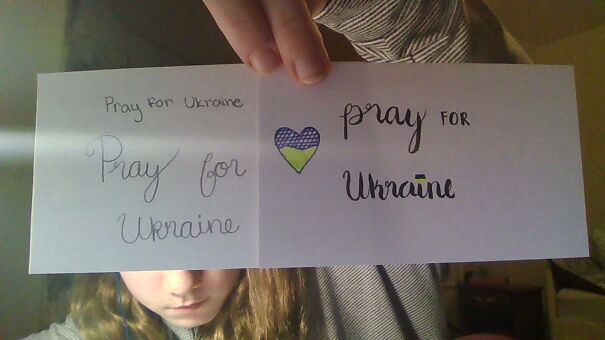 Pray For Ukraine
Pray for
Ukraine
pray FOR
Ukraine